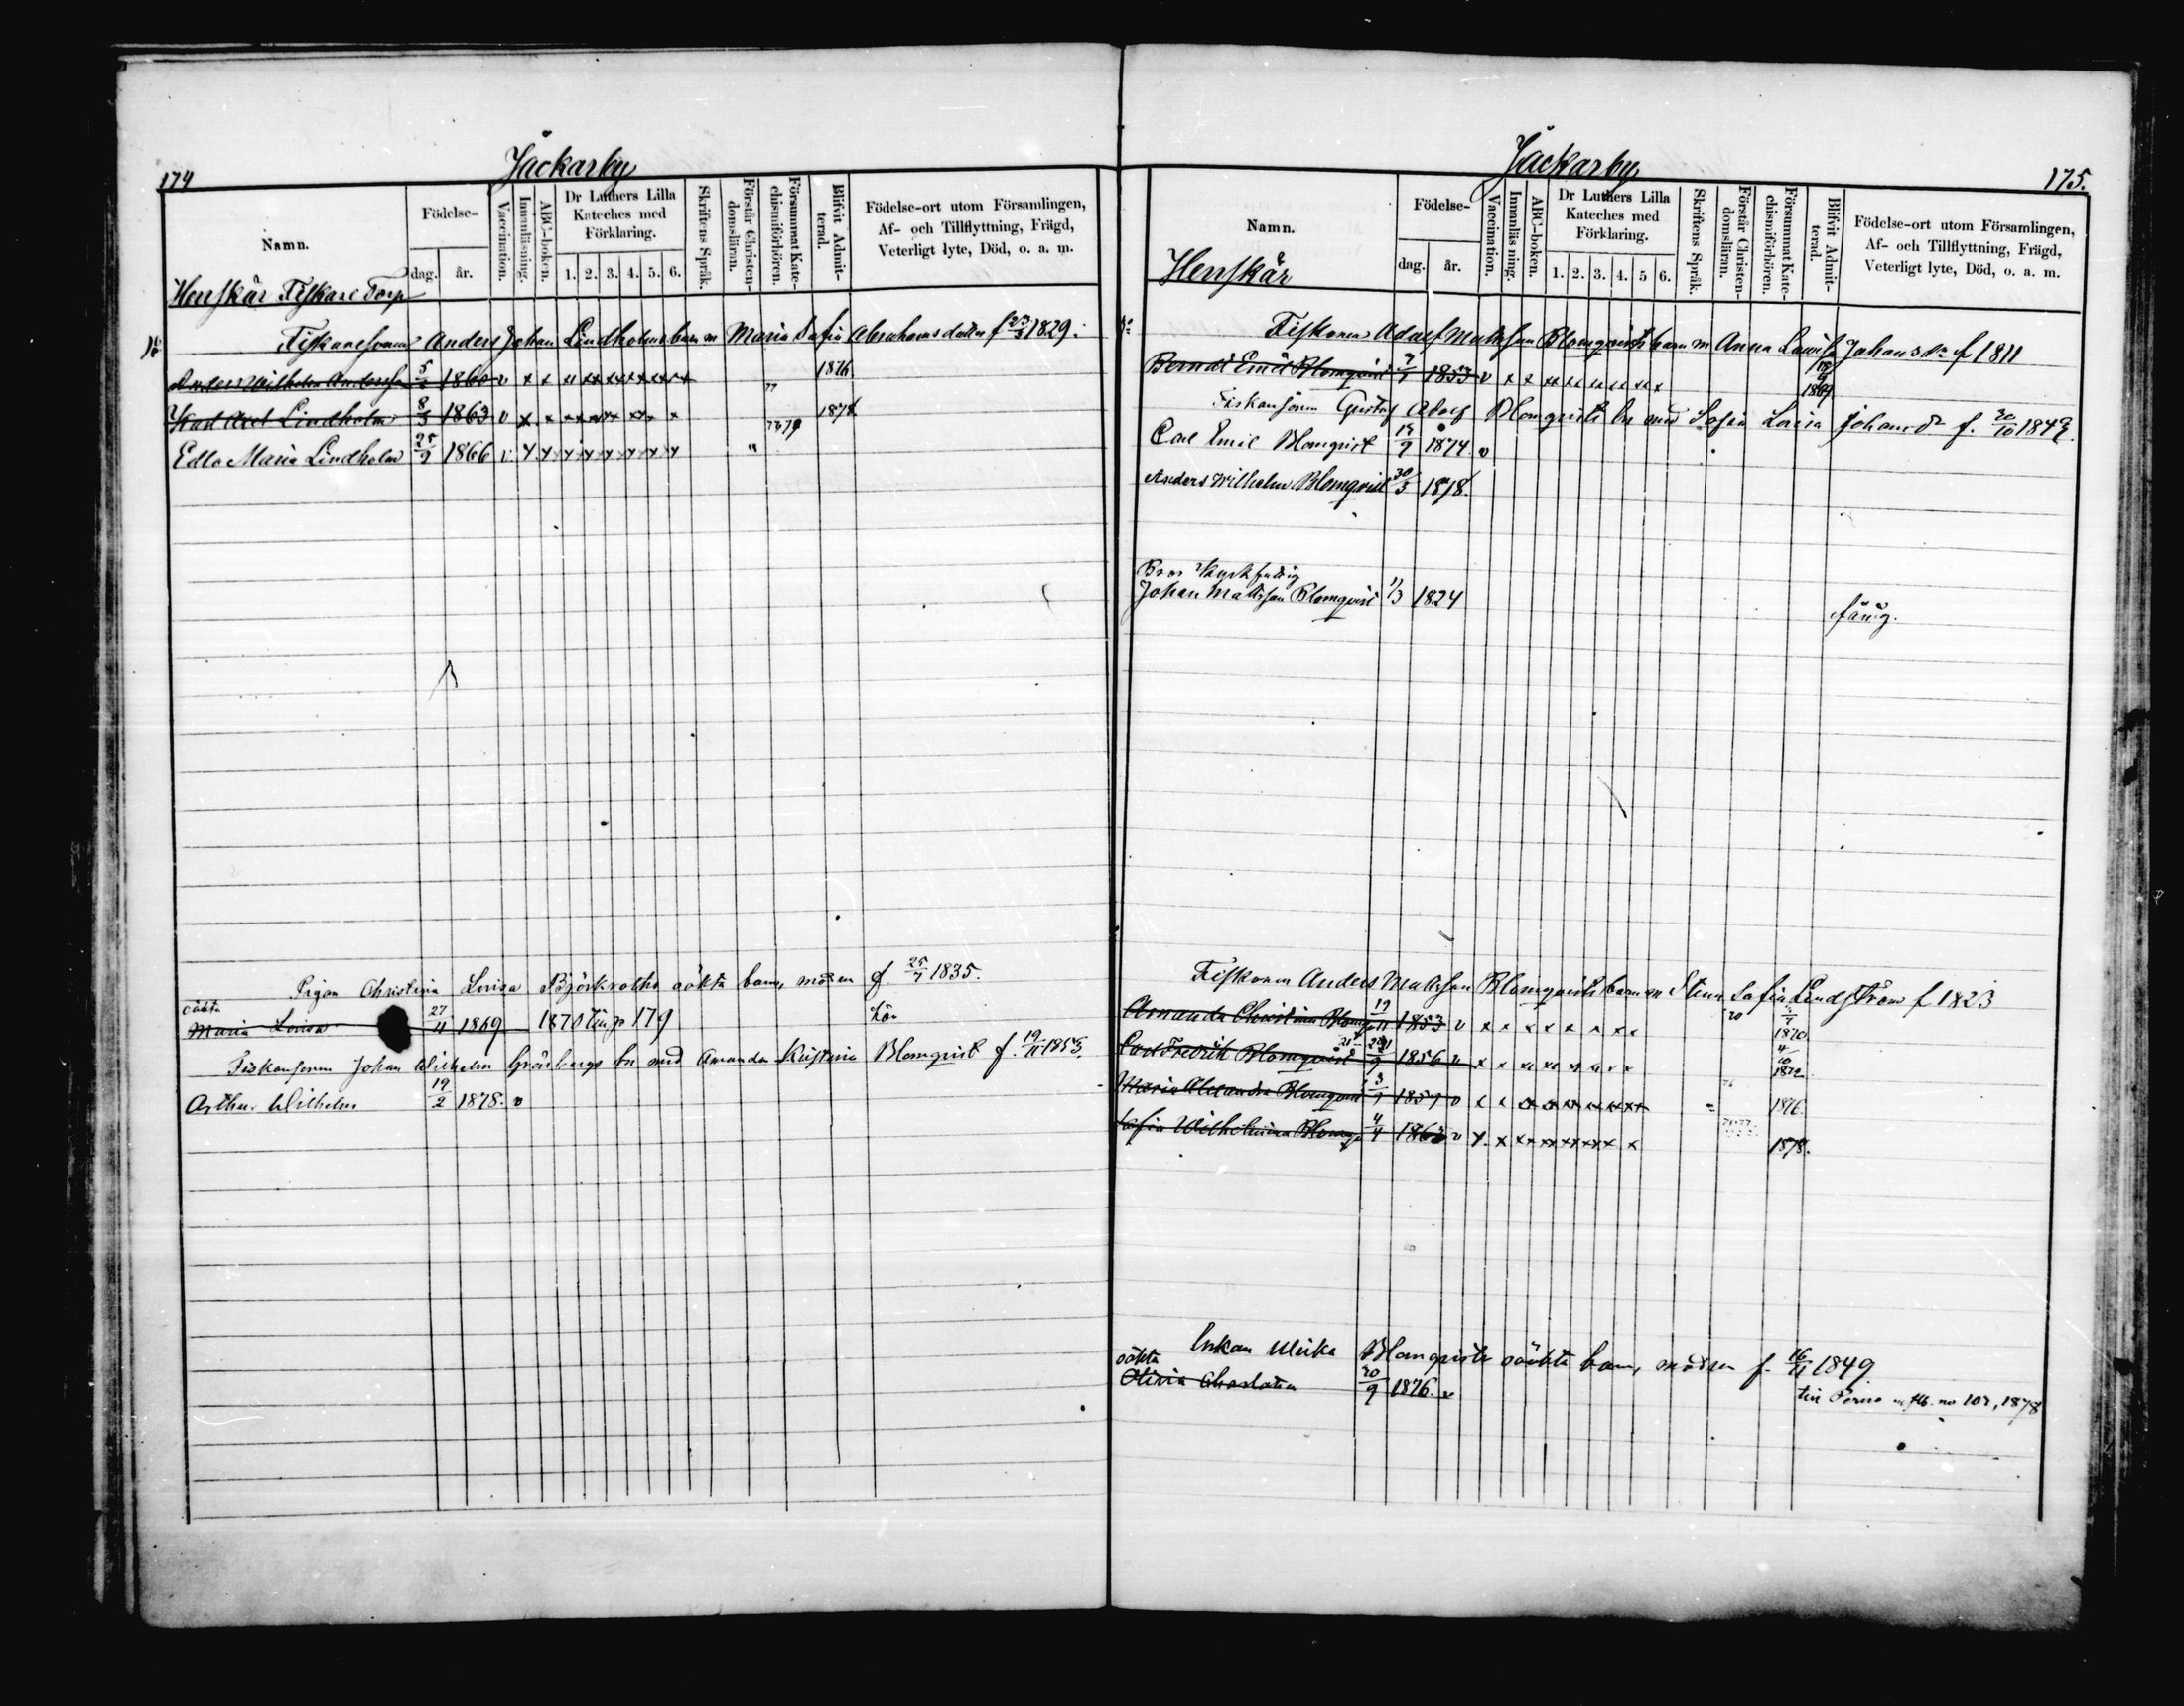 174
Jackarby
Namn.
Födelse-
dag.
år.
Vaccination.
Innanläsning.
ABC-boken.
Dr Luthers Lilla
Kateches med
Förklaring.
1. 2. 3. 4. 5. 6.
Skriftens Språk.
Förstår Christen-
domsläran.
Försummat Kate-
chismiförhören.
Blifvit Admit-
terad.
Födelse-ort utom Församlingen,
Af- och Tillflyttning, Frägd,
Veterligt lyte, Död, o. a. m.
Henskär Fiskare Torp
Fiskaresonen Anders Johan Lindholms barn m Maria Sofia Abrahamsdotter f 23/3 1829.
Anders Wilhelm Andersson 5/ 1860 v x x 1876
Karl Axel Lindholm 8/3 1863 v x x 1878
Edla Maria Lindholm 25/9 1866 v
Pigan Christina Lovisa Björkroths oäkta barn, modren f. 25/7 1835.
oäkta
Maria Lovisa 27/11 1869 1870 till p 179
Fiskaresonen Johan Wilhelm Grönbergs bn med Amanda Kristina Blomqvist f. 19/11 1853.
Arthur Wilhelm 19/2 1878. v
Jackarby
175.
Namn.
Födelse-
dag.
år.
Vaccination.
Innanläsning.
ABC-boken.
Dr Luthers Lilla
Kateches med
Förklaring.
1. 2. 3. 4. 5 6.
Skriftens Språk.
Förstår Christen-
domsläran.
Försummat Kate-
chismiförhören.
Blifvit Admit-
terad.
Födelse-ort utom Församlingen,
Af- och Tillflyttning, Frägd,
Veterligt lyte, Död, o. a. m.
Henskär
Fiskaren Adolf Mattsson Blomqvists barn m Anna Lovisa Johansdr f 1811
Berndt Emil Blomqvist 1853 v x x
Fiskaresonen Gustaf Adolf Blomqvists bn med Sofia Lovisa Johansdr f. 20/10 1849.
Carl Emil Blomqvist 1874 v
Anders Wilhelm Blomqvist 30/3 1878.
Johan Mattsson Blomqvist 1/3 1824
fånig.
Fiskaren Anders Mattsson Blomqvists barn m Stina Sofia Lindström f 1823
Amanda Christina Blomq 19/11 1853 v x x 1870
Carl Fredrik Blomqvist 1856 v x x 1872
Maria Alexandra Blomqvist 1859 v 1876
Sofia Wilhelmina Blomqv 4/4 1863 v x x 1878.
Enkan Ulrika Blomqvists oäkta barn, modren f. 16/11 1849
oäkta
Olivia Charlotta 20/9 1876. v
till Perno 1878